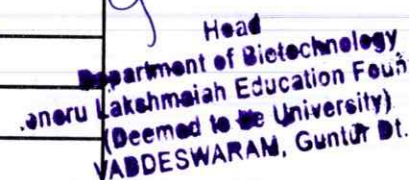 Head
Department of Bietechnology
.oneru Lakshmaiah Education Foun
(Deemed to Be University)
VADDESWARAM, Guntur Dt.